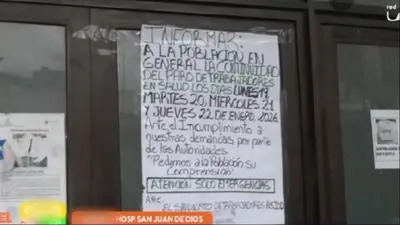 INFORMAR:
A LA POBLACIÓN EN
GENERAL LA CONTINUIDAD
DEL PARO DE TRABAJADORES
EN SALUD LOS DIAS LUNES 19,
MARTES 20, MIERCOLES 21
Y JUEVES 22 DE ENERO, 2026
Ante el Incumplimiento a
nuestras demandas por parte
de las Autoridades
"Pedimos a la Población su
Comprensión"
ATENCION SOLO EMERGENCIAS
Atte.
EL SINDICATO DE TRABAJADORES
HOSP. SAN JUAN DE DIOS
red